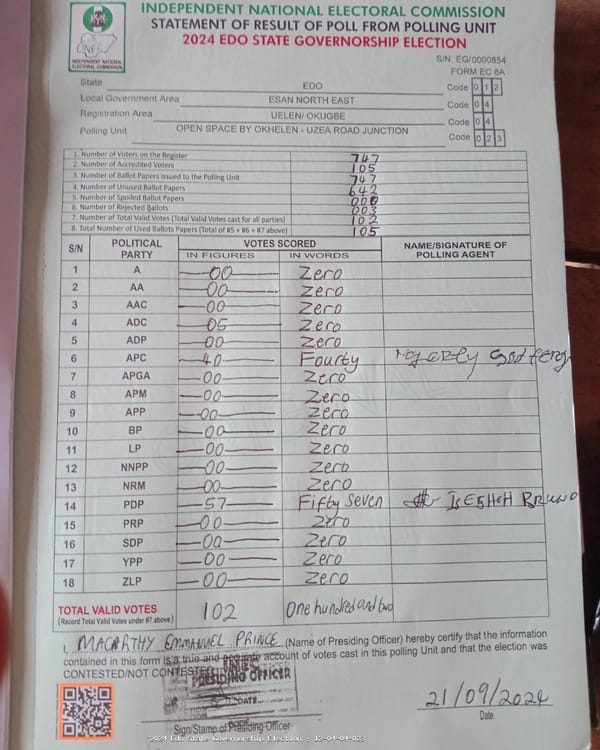 INDEPENDENT NATIONAL ELECTORAL COMMISSION
STATEMENT OF RESULT OF POLL FROM POLLING UNIT
2024 EDO STATE GOVERNORSHIP ELECTION
INDEPENDENT NATIONAL
ELECTORAL COMMISSION
S/N: EG/0000854
FORM EC 8A
State EDO Code 0 1 2
Local Government Area ESAN NORTH EAST Code 0 4
Registration Area UELEN/ OKUGBE Code 0 4
Polling Unit OPEN SPACE BY OKHELEN - UZEA ROAD JUNCTION Code 0 2 3
1. Number of Voters on the Register 747
2. Number of Accredited Voters 105
3. Number of Ballot Papers Issued to the Polling Unit 747
4. Number of Unused Ballot Papers 642
5. Number of Spoiled Ballot Papers 000
6. Number of Rejected Ballots 003
7. Number of Total Valid Votes (Total Valid Votes cast for all parties) 102
8. Total Number of Used Ballots Papers (Total of #5 + #6 + #7 above) 105
S/N POLITICAL PARTY VOTES SCORED NAME/SIGNATURE OF POLLING AGENT
IN FIGURES IN WORDS
1 A 00 Zero
2 AA 00 Zero
3 AAC 00 Zero
4 ADC 05 Zero
5 ADP 00 Zero
6 APC 40 Fourty
7 APGA 00 Zero
8 APM 00 Zero
9 APP 00 Zero
10 BP 00 Zero
11 LP 00 Zero
12 NNPP 00 Zero
13 NRM 00 Zero
14 PDP 57 Fifty Seven
15 PRP 00 Zero
16 SDP 00 Zero
17 YPP 00 Zero
18 ZLP 00 Zero
TOTAL VALID VOTES 102 One hundred and two
(Record Total Valid Votes under #7 above)
I, MACARTHY EMMANUEL PRINCE (Name of Presiding Officer) hereby certify that the information
contained in this form is a true and accurate account of votes cast in this polling Unit and that the election was
CONTESTED/NOT CONTESTED
PRESIDING OFFICER
DATE
21/09/2024
Sign/Stamp of Presiding Officer
Date
2024 Edo State Governorship Election : 12-04-04-023